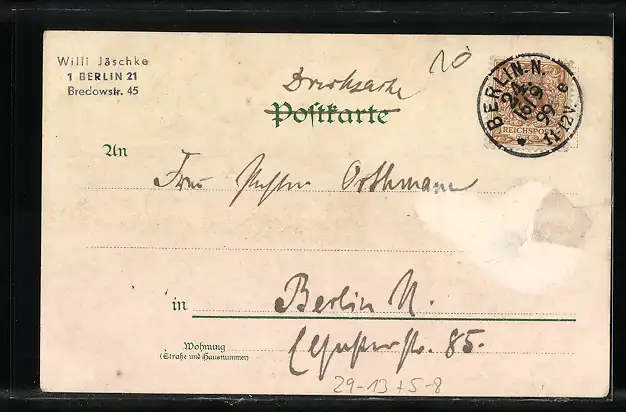 Willi Jäschke
1 BERLIN 21
Bredowstr. 45
10
Drucksache
Postkarte
BERLIN. N.
24
16/9
99
11-12 V.
e
REICHSPOST
An
Frau Pastor Orthmann
in Berlin N.
Wohnung
(Straße und Hausnummer)
Elsasserstr. 85.
29-13+5-8